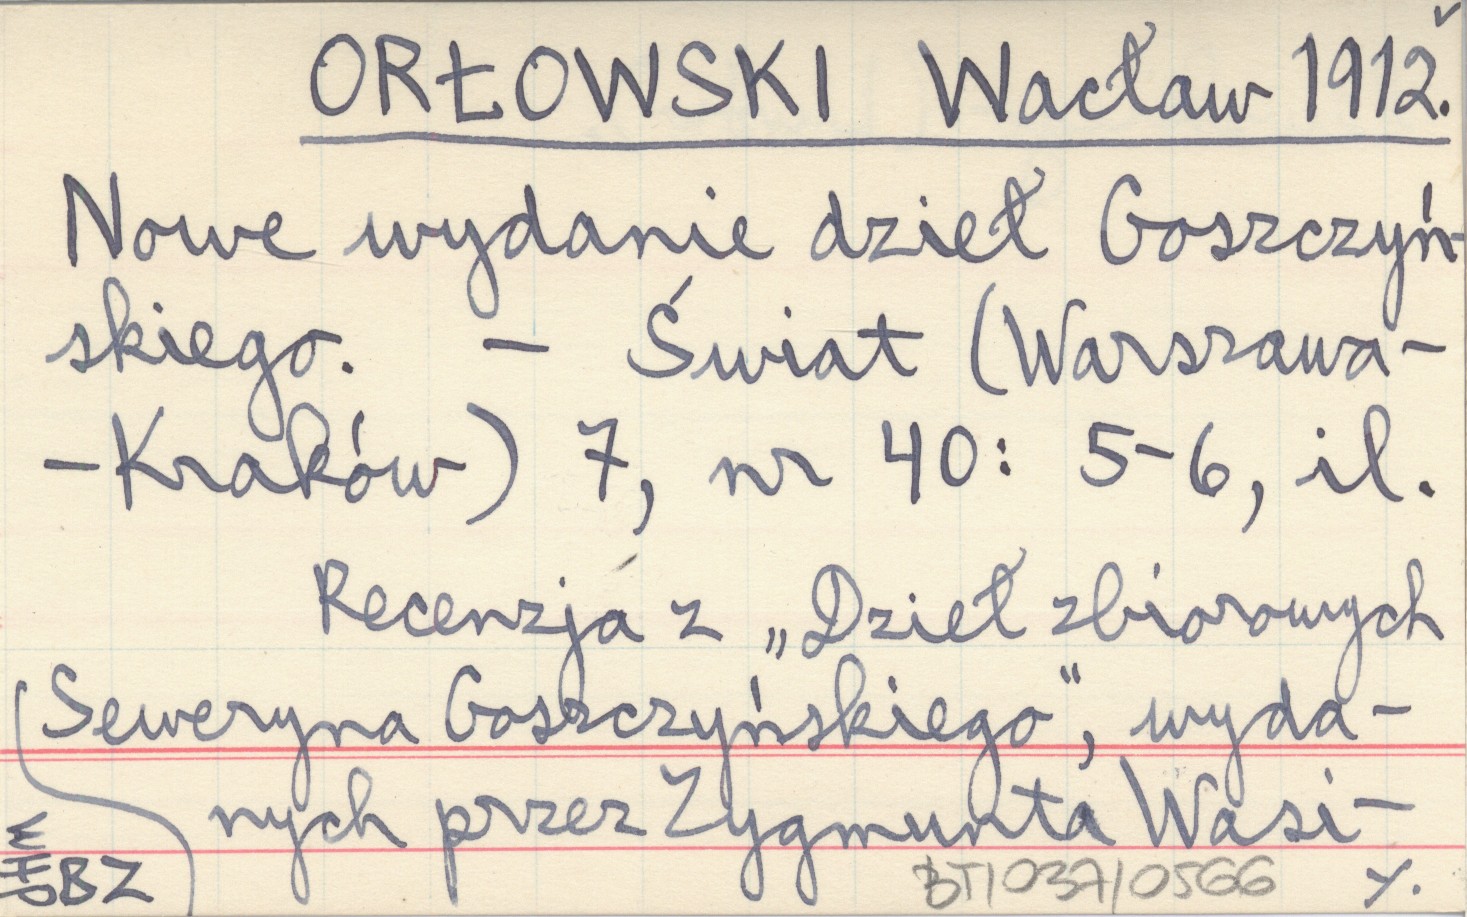 ORŁOWSKI Wacław 1912.
Nowe wydanie dzieł Goszczyń-
skiego. – Świat (Warszawa-
-Kraków) 7, nr 40: 5-6, il.
Recenzja z „Dzieł zbiorowych
Seweryna Goszczyńskiego”, wyda-
nych przez Zygmunta Wasi-
BZ
BT/037/0566